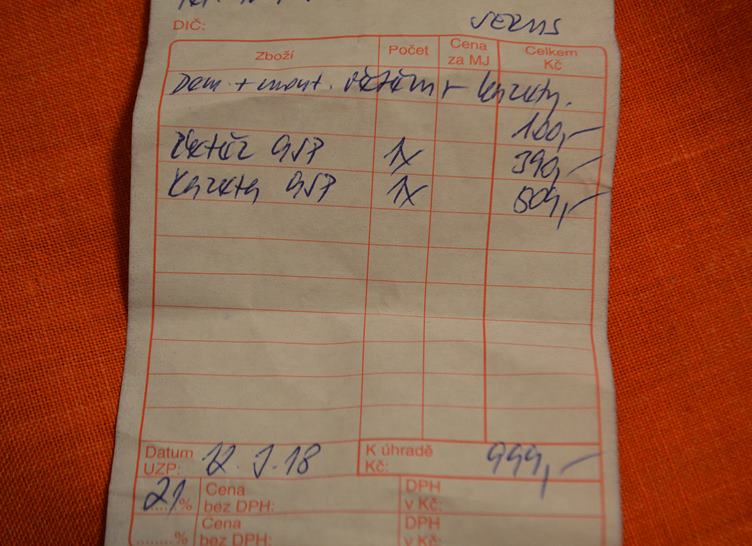 DIČ: SERVIS
Zboží Počet Cena za MJ Celkem Kč
Dem. + mont. řetězu + kazety.
100,-
Řetěz 9SP 1x 390,-
Kazeta 9SP 1x 509,-
Datum UZP: 12. 3. 18 K úhradě Kč: 999,-
21 % Cena bez DPH: DPH v Kč:
% Cena bez DPH: DPH v Kč: